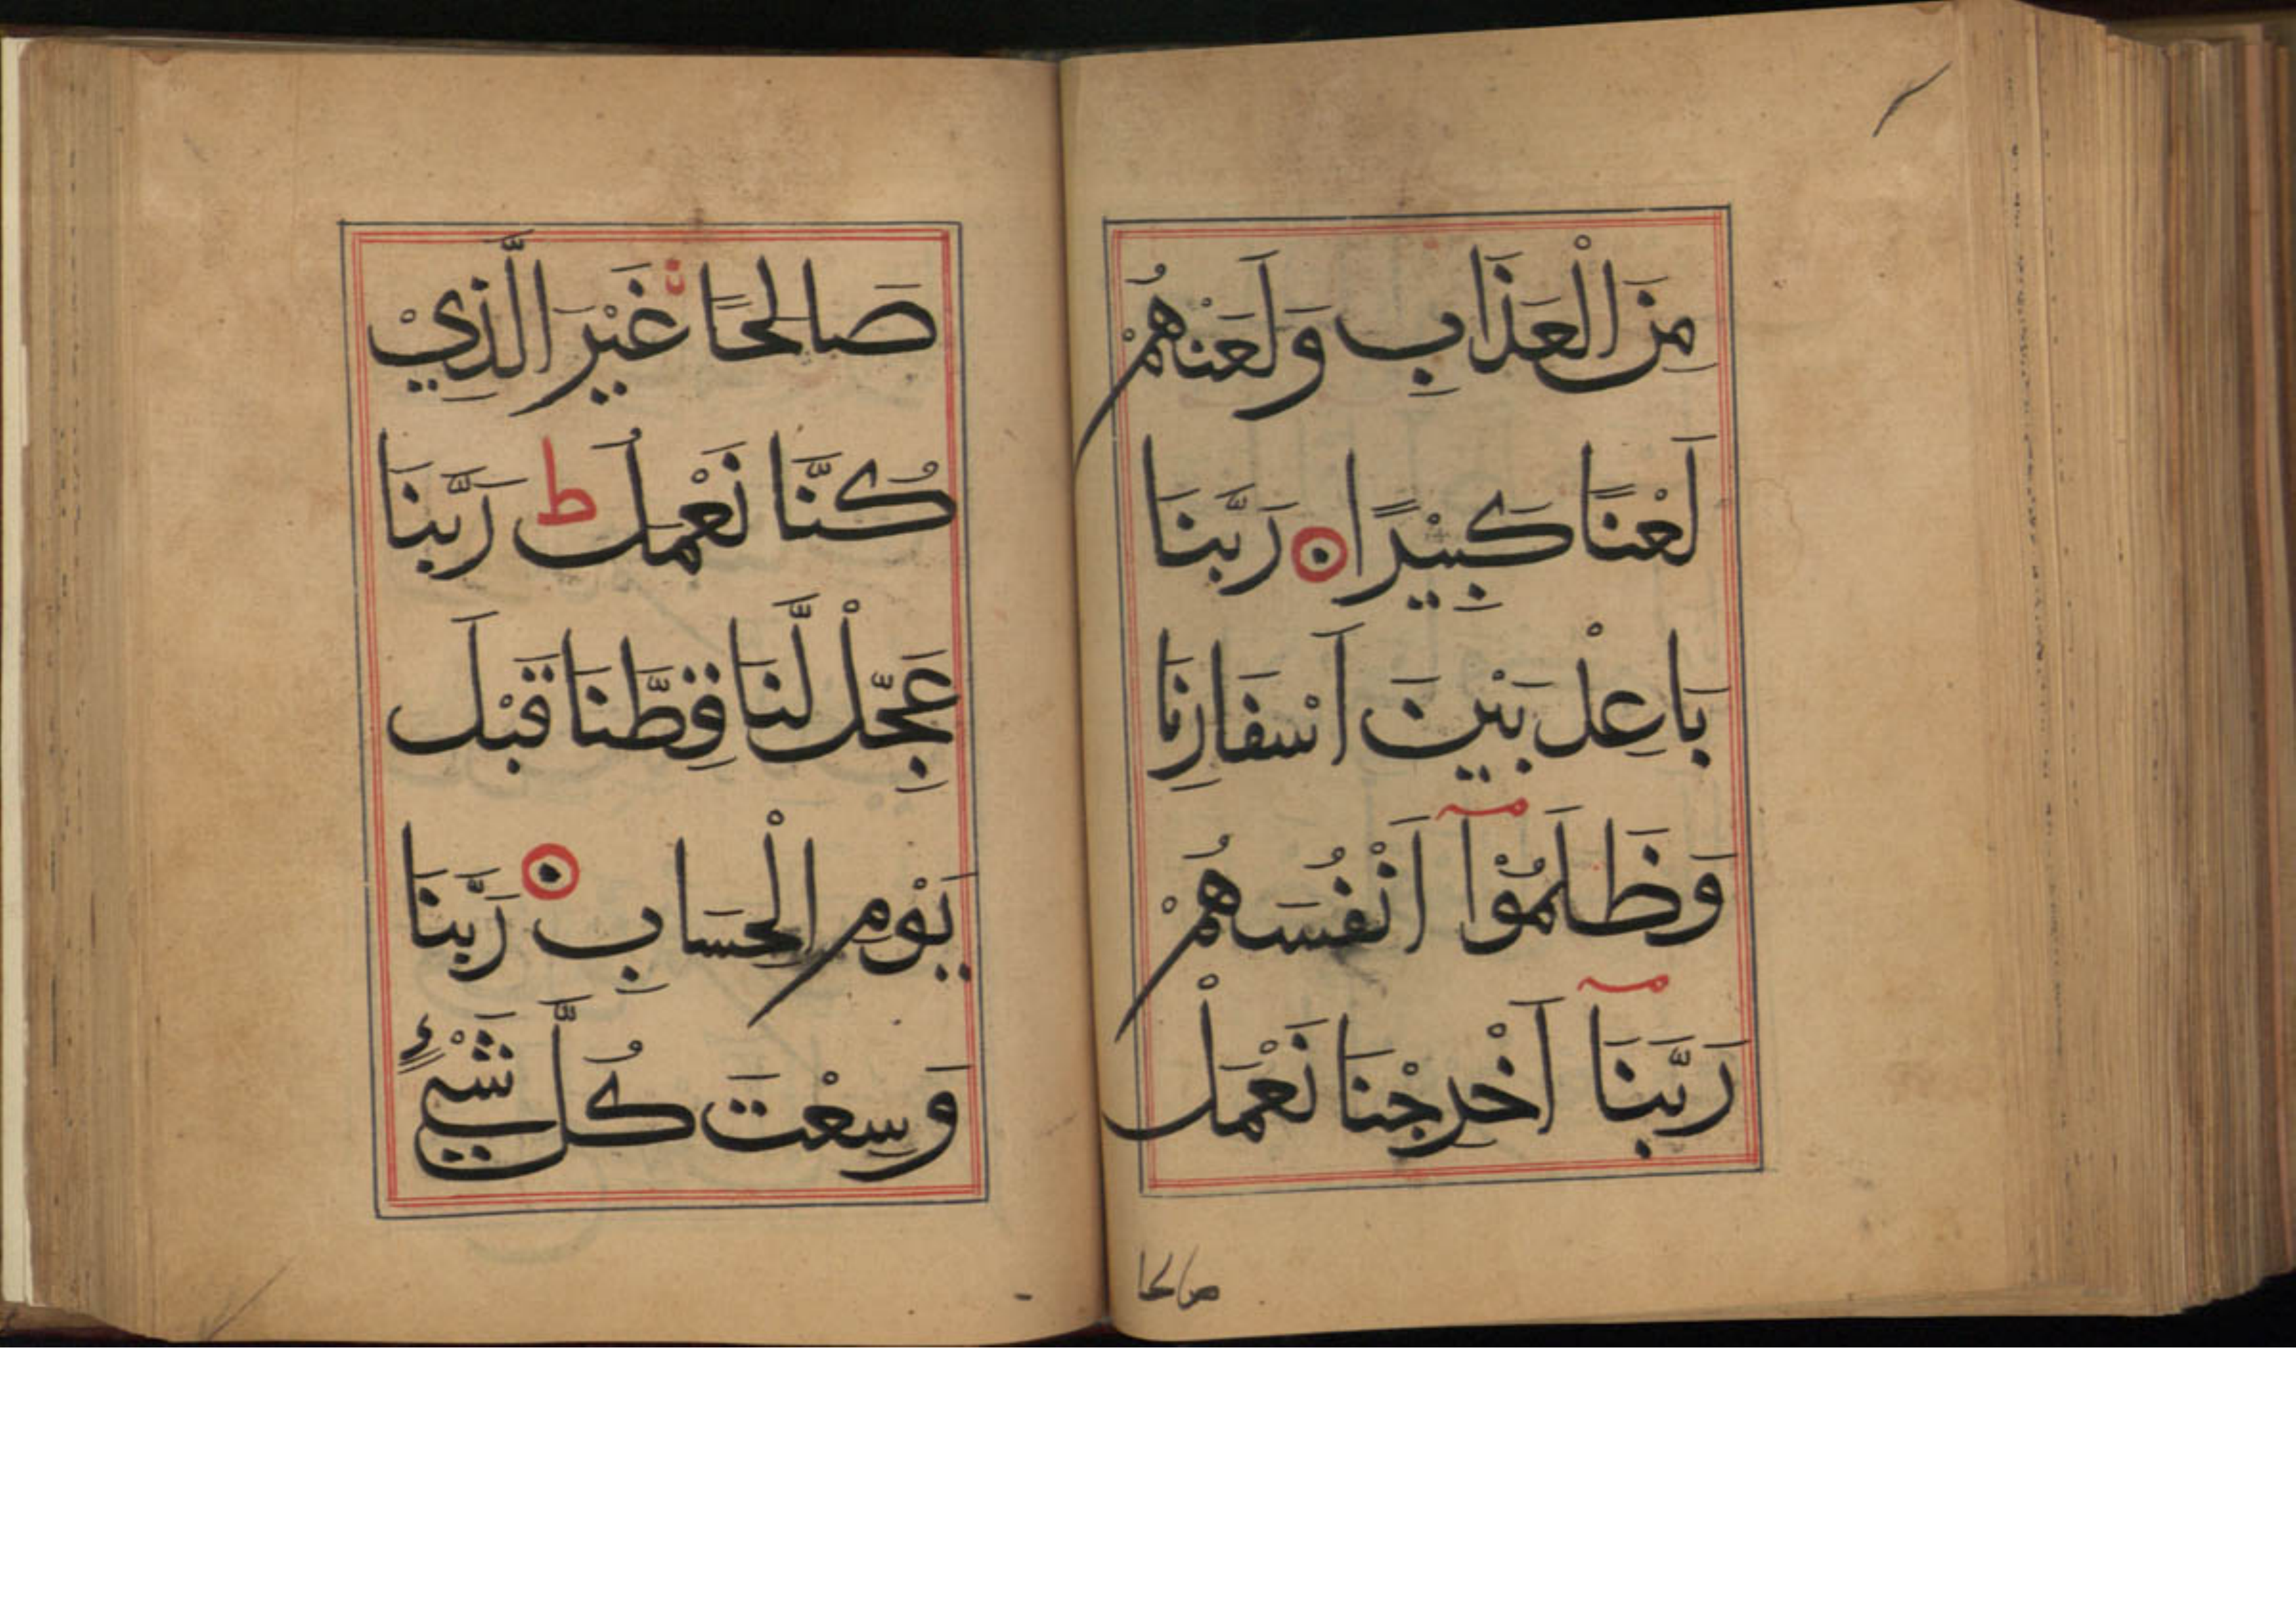 مِنَ الْعَذَابِ وَلَعَنْهُمْ
لَعْنًا كَبِيْرًا ۝ رَبَّنَا
بَاعِدْ بَيْنَ اَسْفَارِنَا
وَظَلَمُوْۤا اَنْفُسَهُمْ
رَبَّنَاۤ اَخْرِجْنَا نَعْمَلْ
صالحا
صَالِحًا غَيْرَ الَّذِيْ
كُنَّا نَعْمَلُ ط رَبَّنَا
عَجِّلْ لَّنَا قِطَّنَا قَبْلَ
يَوْمِ الْحِسَابِ ۝ رَبَّنَا
وَسِعْتَ كُلَّ شَيْءٍ